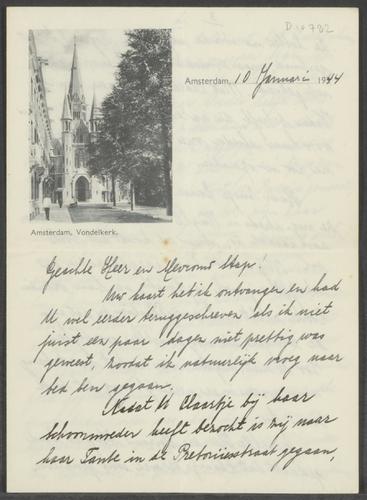 D 10782
Amsterdam, 10 Januari 1944
Amsterdam, Vondelkerk.
Geachte Heer en Mevrouw Stap!
Uw kaart heb ik ontvangen en had
U wel eerder teruggeschreven als ik niet
juist een paar dagen niet prettig was
geweest, zoodat ik natuurlijk vroeg naar
bed ben gegaan.
Nadat U Claartje bij haar
schoonmoeder heeft bezocht is zij naar
haar Tante in de Pretoriusstraat gegaan,